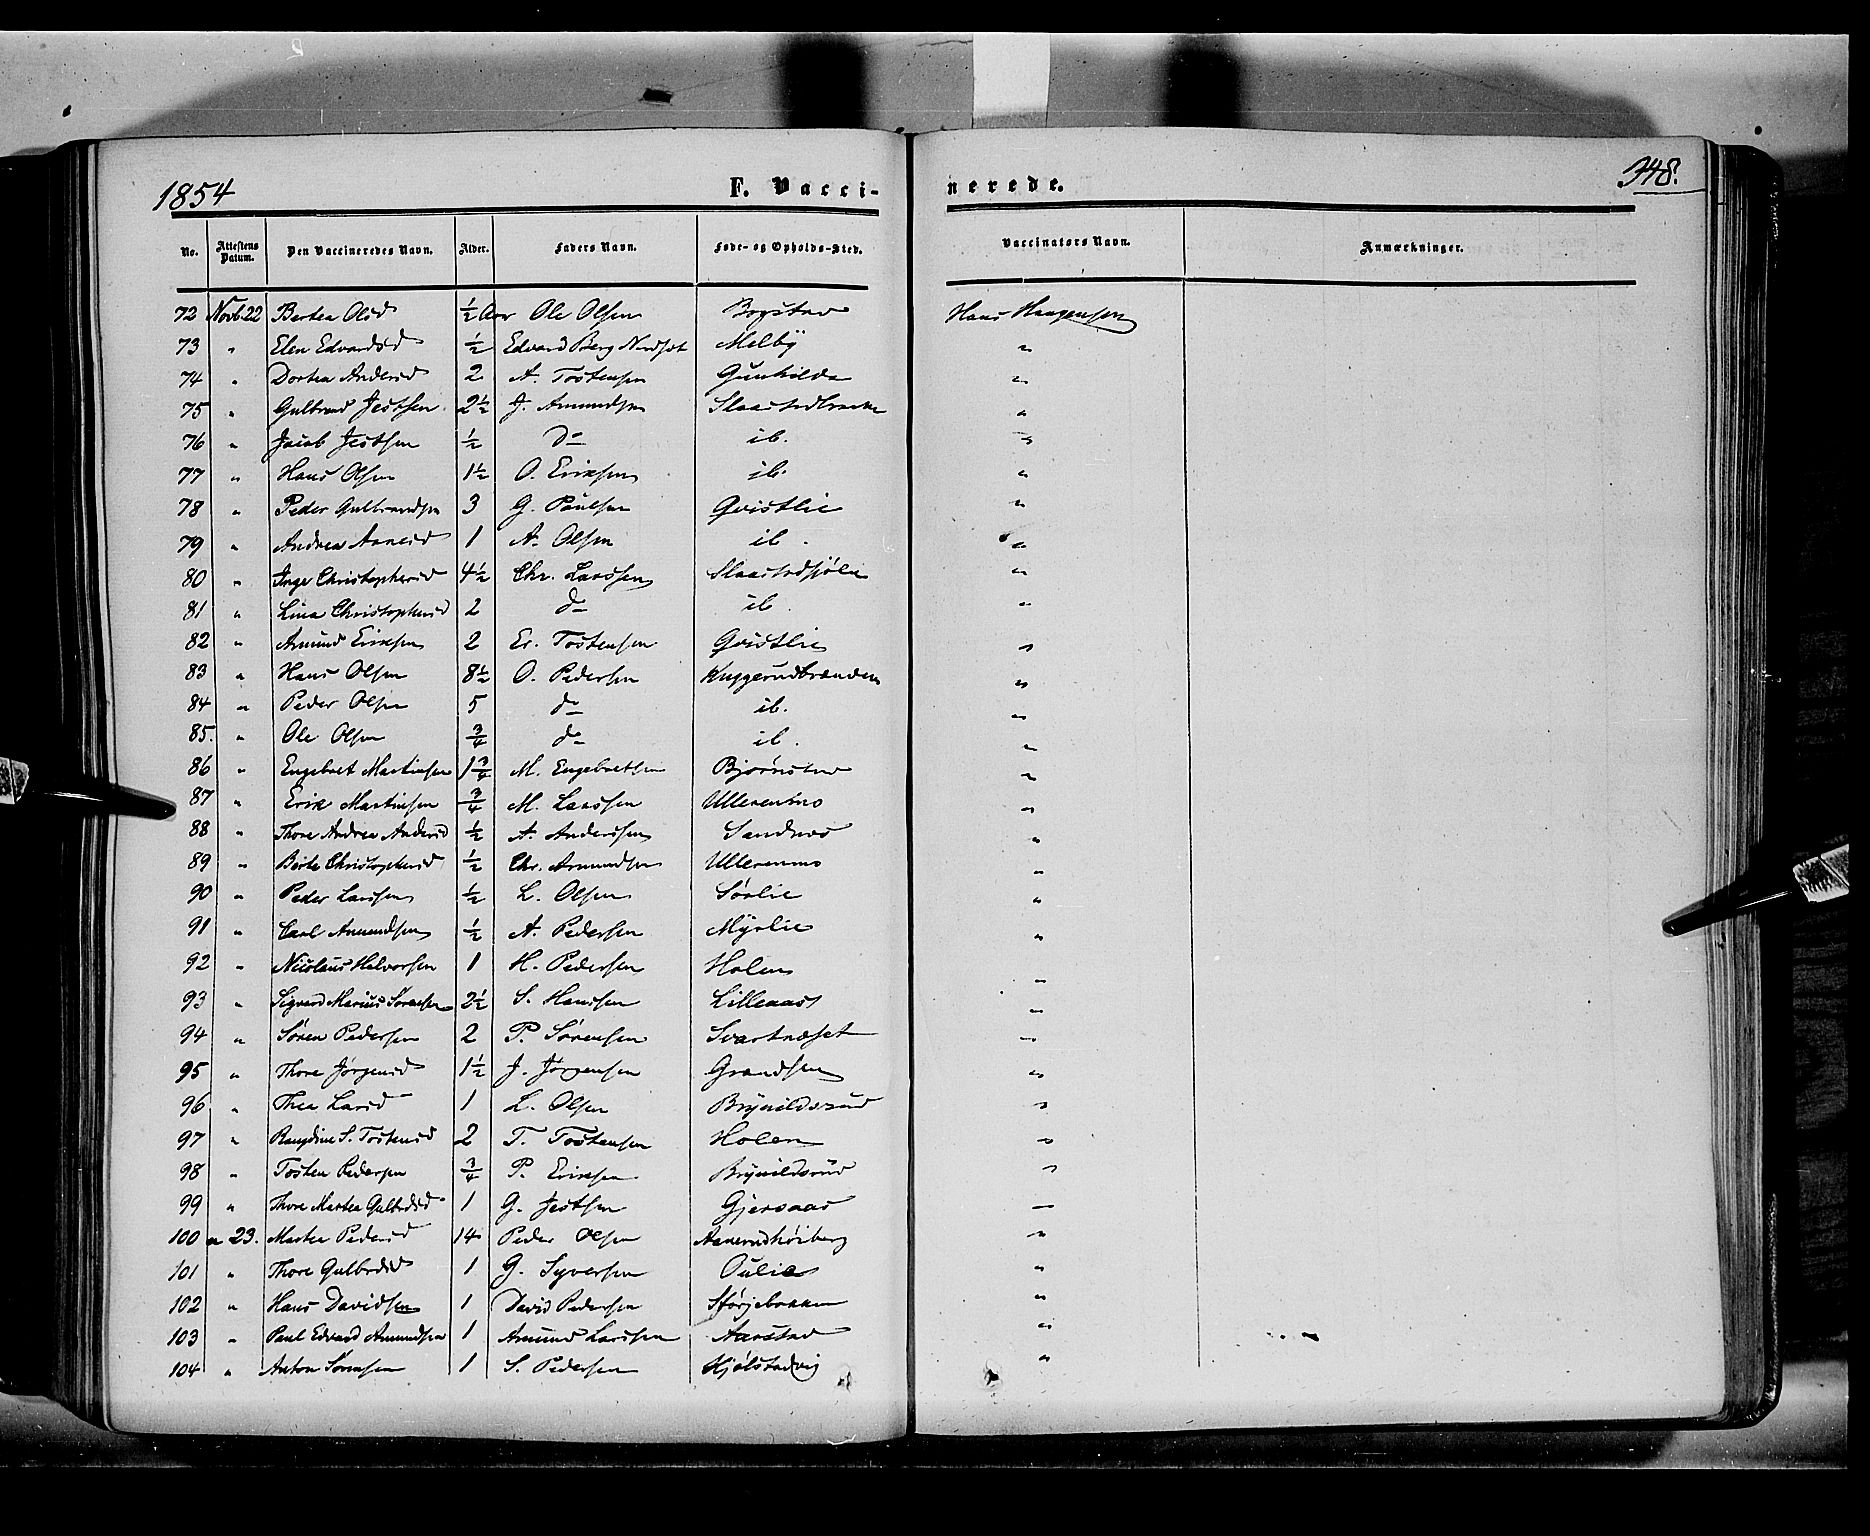 1854 F. Vacci- nerede. 348.
No. Attestens Datum. Den Vaccineredes Navn. Alder. Faders Navn. Føde- og Opholds-Sted. Vaccinators Navn. Anmærkninger.
72 Novb 22 Berthea Olsd ½ Aar Ole Olsen Bogstad Hans Haagensen
73 " Elen Edvardsd ½ Edvard Berg Nordset Melby "
74 " Dortea Andersd 2 A. Tostensen Gunhilds "
75 " Gulbrand Jestsen 2½ J. Amundsen Slaastadbraate "
76 " Jacob Jestsen ½ do ib. "
77 " Hans Olsen 1½ O. Eriksen ib. "
78 " Peder Gulbrandsen 3 G. Paulsen Qvistlie "
79 " Andrea Arnesd 1 A. Olsen ib. "
80 " Inge Christophersd 4½ Chr. Larssen "
81 " Lina Christophersd 2 do ib. "
82 " Amund Eriksen 2 Er. Tostensen Qvistlie "
83 " Hans Olsen 8½ O. Pedersen Kuggerudbraaden "
84 " Peder Olsen 5 do ib. "
85. " Ole Olsen ¾ do ib. "
86 " Engebret Martinsen 1¾ M. Engebretsen Bjørnstad "
87 " Erik Martinsen ¾ M. Larssen Ullerenmo "
88 " Thore Andrea Andersd ½ A. Anderssen Sandnes "
89 " Berte Christophersd ½ Chr. Amundsen Ullerenmo "
90 " Peder Larssen ½ L. Olsen Sørlie "
91 " Carl Amundsen ½ A. Pedersen Myrlie "
92 " Nicolaus Halvorsen 1 H. Pedersen Holen "
93 " Sigvard Marius Sørensen 2½ S. Hanssen Lilleaas "
94 " Søren Pedersen 2 P. Sørensen Svartnæset "
95 " Thore Jørgensd 1½ J. Jørgensen Grandsen "
96 " Thea Larsd 1 L. Olsen Brynildsrud "
97 " Rangdine S. Tostensd 2 T. Tostensen Holen "
98 " Tosten Pedersen ¾ P. Eriksen Brynildsrud "
99 " Thore Martea Gulbrdsd 1 G. Jestsen Gjersaas "
100 " 23. Martea Pedersd 14 Peder Olsen Aanerudhøiberg "
101 " Thore Gulbrdsd 1 G. Syversen Oulie "
102 " Hans Davidsen 1 David Pedersen Størjebakken "
103 " Paul Edvard Amundsen 1 Amund Larssen Aarstad "
104 " Anton Sørensen 1 S. Pedersen Kjølstadvig "